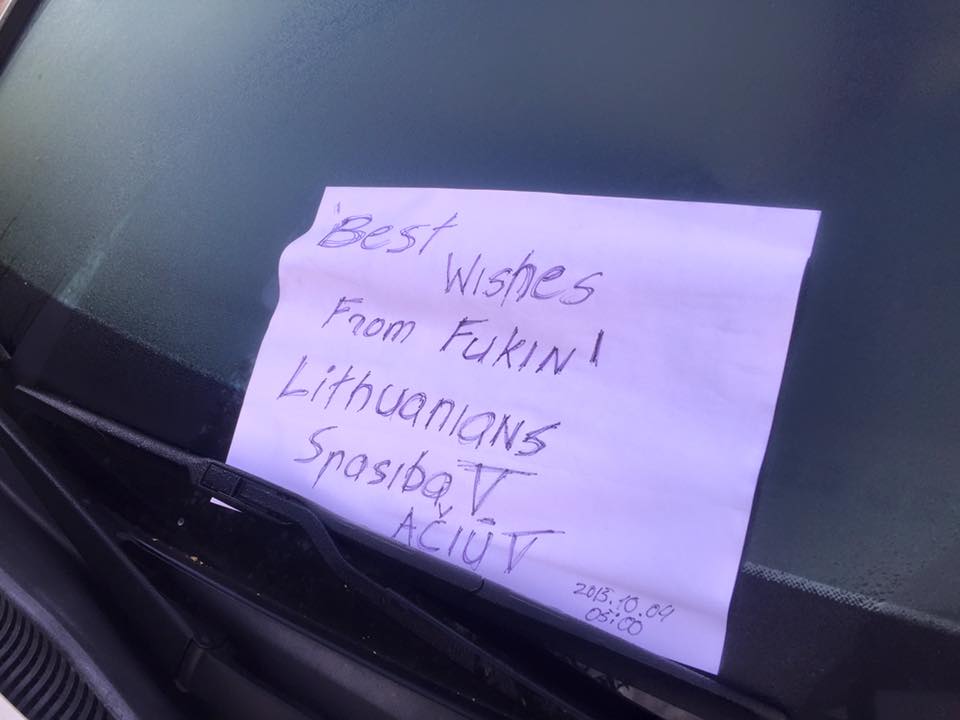 'Best
Wishes
From Fukin'
Lithuanians
Spasiba V
AČIŪ V
2015.10.04
03:00